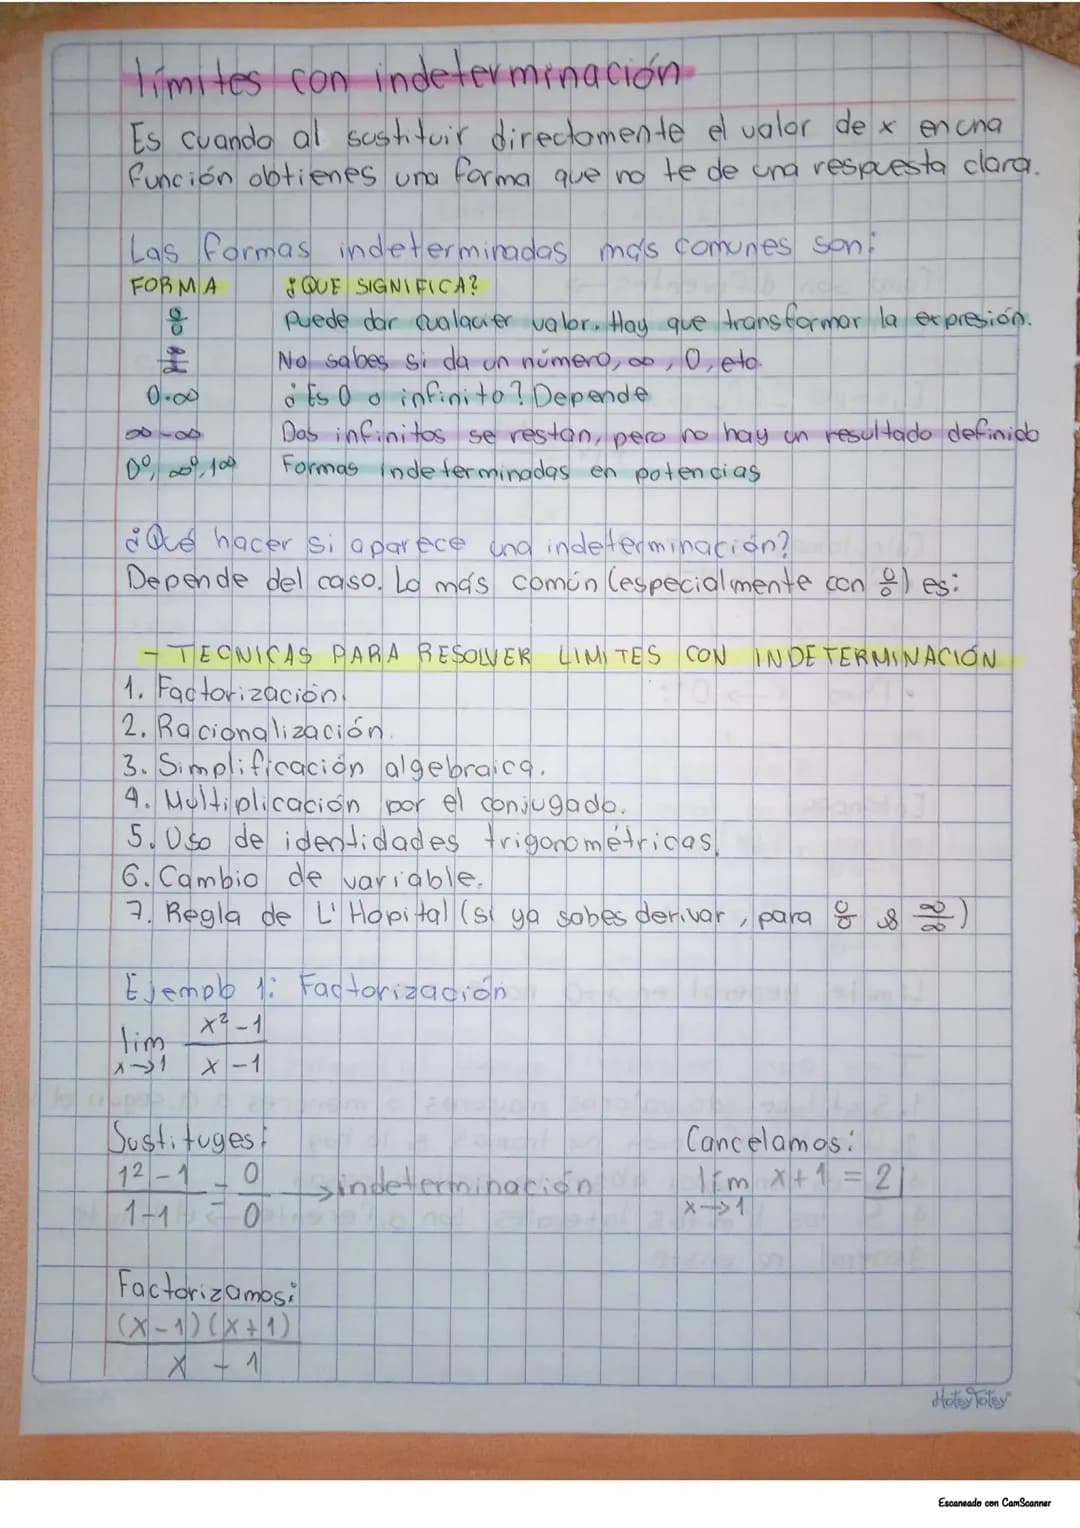 límites con indeterminación
Es cuando al sustituir directamente el valor de x en una
función obtienes una forma que no te de una respuesta clara.
Las formas indeterminadas más comunes son:
FORMA ¿QUE SIGNIFICA?
0/0 Puede dar cualquier valor. Hay que transformar la expresión.
∞/∞ No sabes si da un número, ∞, 0, etc.
0·∞ ¿Es 0 o infinito? Depende
∞-∞ Dos infinitos se restan, pero no hay un resultado definido
0⁰, ∞⁰, 1∞ Formas indeterminadas en potencias
¿Qué hacer si aparece una indeterminación?
Depende del caso. Lo más común (especialmente con 0/0) es:
- TECNICAS PARA RESOLVER LIMITES CON INDETERMINACIÓN
1. Factorización.
2. Racionalización.
3. Simplificación algebraica.
4. Multiplicación por el conjugado.
5. Uso de identidades trigonométricas.
6. Cambio de variable.
7. Regla de L'Hopital (si ya sabes derivar, para 0/0 y ∞/∞)
Ejemplo 1: Factorización
lim x→1 x²-1 / x-1
Sustituyes:
1²-1 / 1-1 = 0/0 → indeterminación
Factorizamos:
(x-1)(x+1) / x-1
Cancelamos:
lím x→1 x+1 = 2
HotsyTotsy
Escaneado con CamScanner